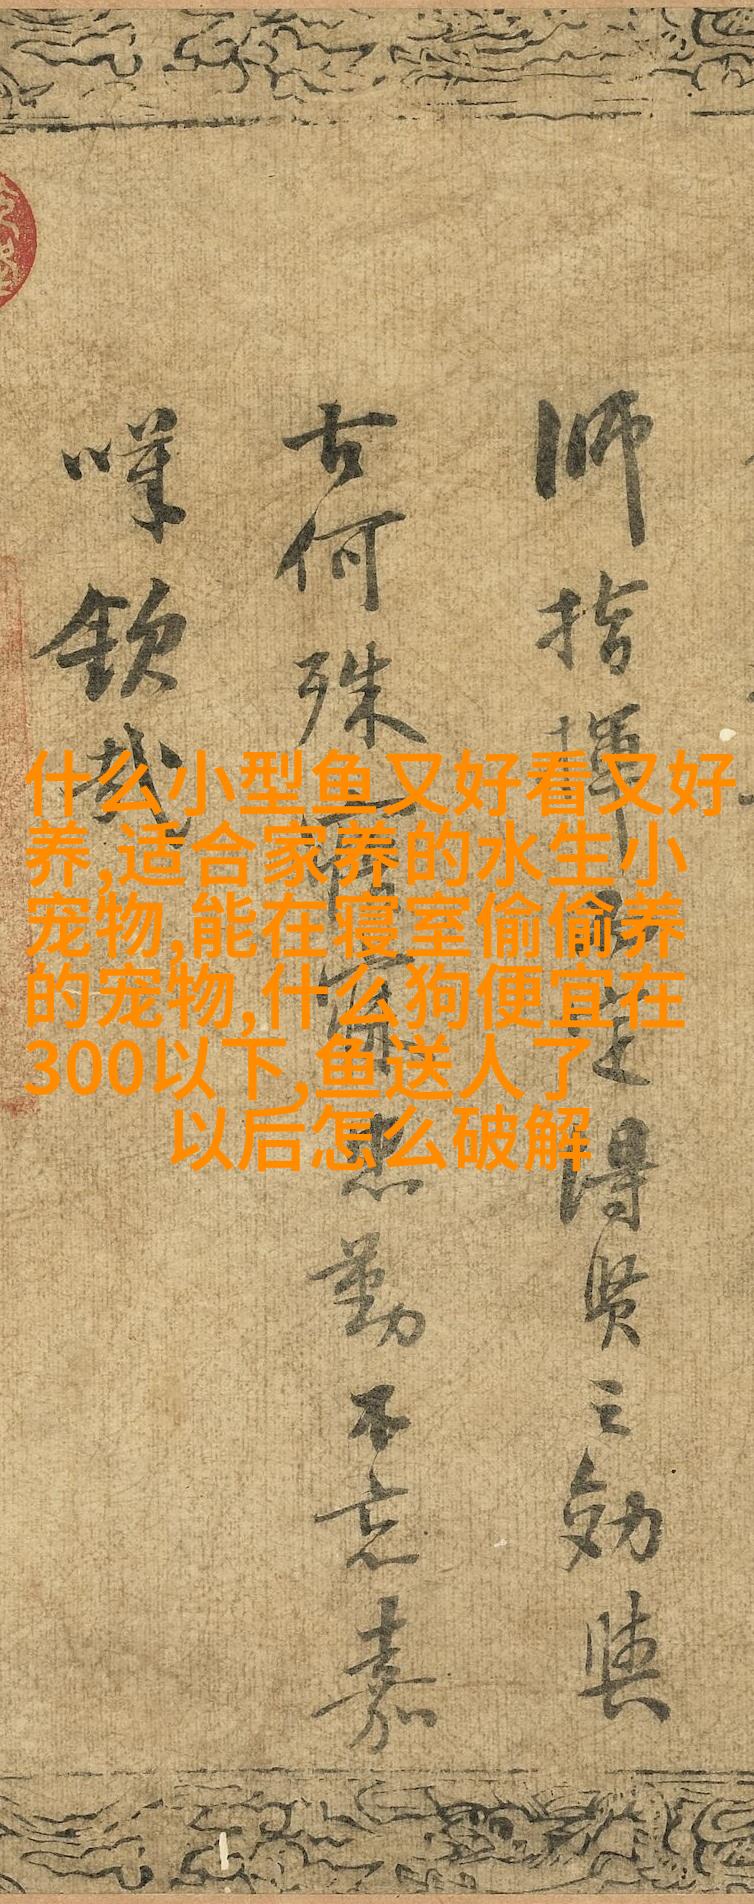 师指挥
定得贤之効与
古何殊
忠勤不忘嘉
叹钦哉
什么小型鱼又好看又好
养,适合家养的水生小
宠物,能在寝室偷偷养
的宠物,什么狗便宜在
300以下,鱼送人了
以后怎么破解